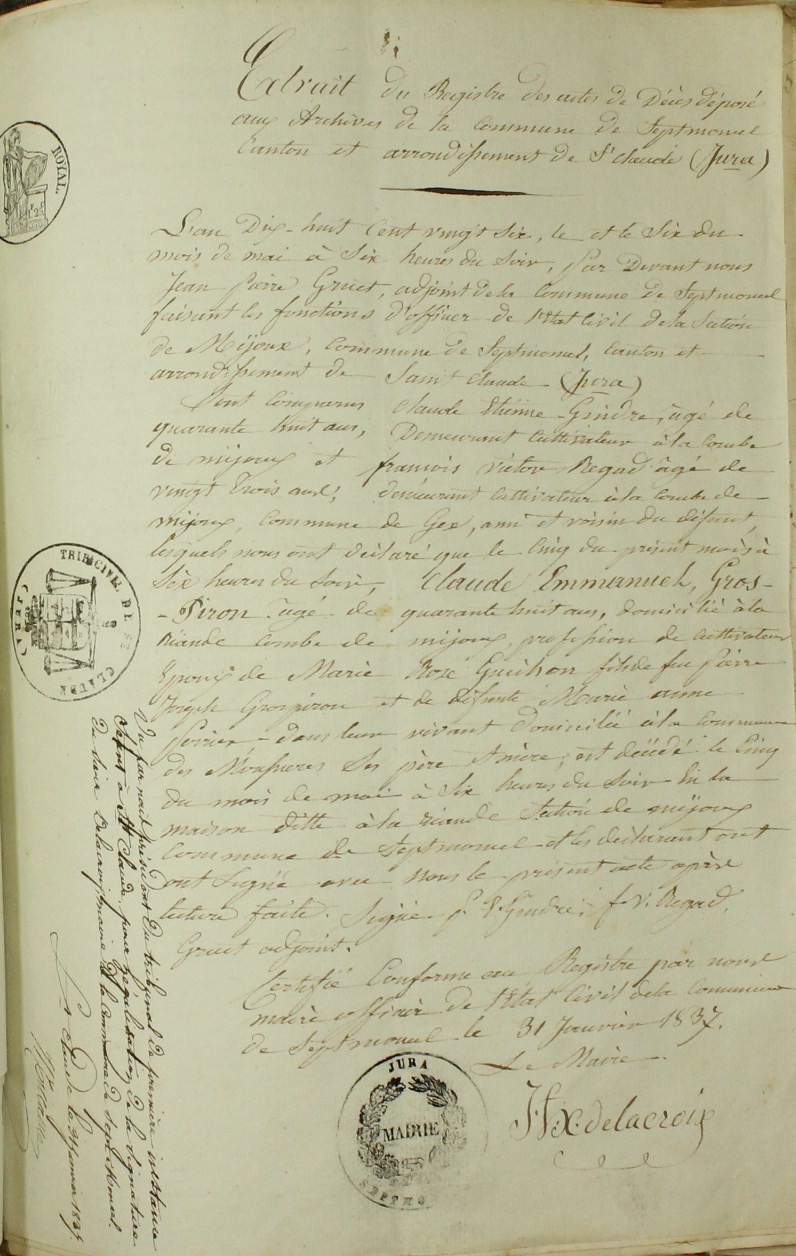 Extrait du Registre des actes de Décès déposé
aux Archives de la Commune de Septmoncel
Canton et arrondissement de St Claude (Jura)
L'an Dix-huit Cent vingt Six, le et le Six du
mois de mai à Six heures du Soir, par Devant nous
Jean Pierre Gruet, adjoint de la Commune de Septmoncel
faisant les fonctions d'officier de l'Etat Civil de la Section
de Mijoux, Commune de Septmoncel, Canton et
arrondissement de Saint Claude (Jura)
Sont Comparus Claude Etienne Gindre, âgé de
quarante huit ans, Demeurant Cultivateur à la Combe
de mijoux et francois victor Regad âgé de
vingt Trois ans, demeurant Cultivateur à la Combe de
mijoux, Commune de Gex, ami et voisin du défunt,
lesquels nous ont déclaré que le Cinq du présent mois à
Six heures du Soir, Claude Emmanuel, Gros-
-Piron âgé de quarante huit ans, domicilié à la
Riande Combe de mijoux, profession de Cultivateur
Epoux de Marie Rose fils de feu Pierre
Joseph Grospiron et de défunte Marie aime
Perrier, dans leur vivant Domicilié à la Commune
des Ses père & mère, est décédé le Cinq
du mois de mai à Six heures du Soir En la
maison ditte à la riande Section de mijoux
Commune de Septmoncel et les déclarant ont
ont Signé avec nous le présent acte après
lecture faite. Signé Gindre, f. v. Regad,
Gruet adjoint.
Certifié Conforme au Registre par nous
maire officier de l'Etat Civil de la Commune
de Septmoncel le 31 Janvier 1837.
Le Maire
Delacroix
JURA
MAIRIE
SEPTMO
ROYAL
TRIB. CIVIL DE ST
CLAUDE
Vu par nous président du tribunal de première instance
séant à St Claude, pour légalisation de la signature
du sieur Delacroix, maire de la commune de Septmoncel.
St Claude le 31 janvier 1837.